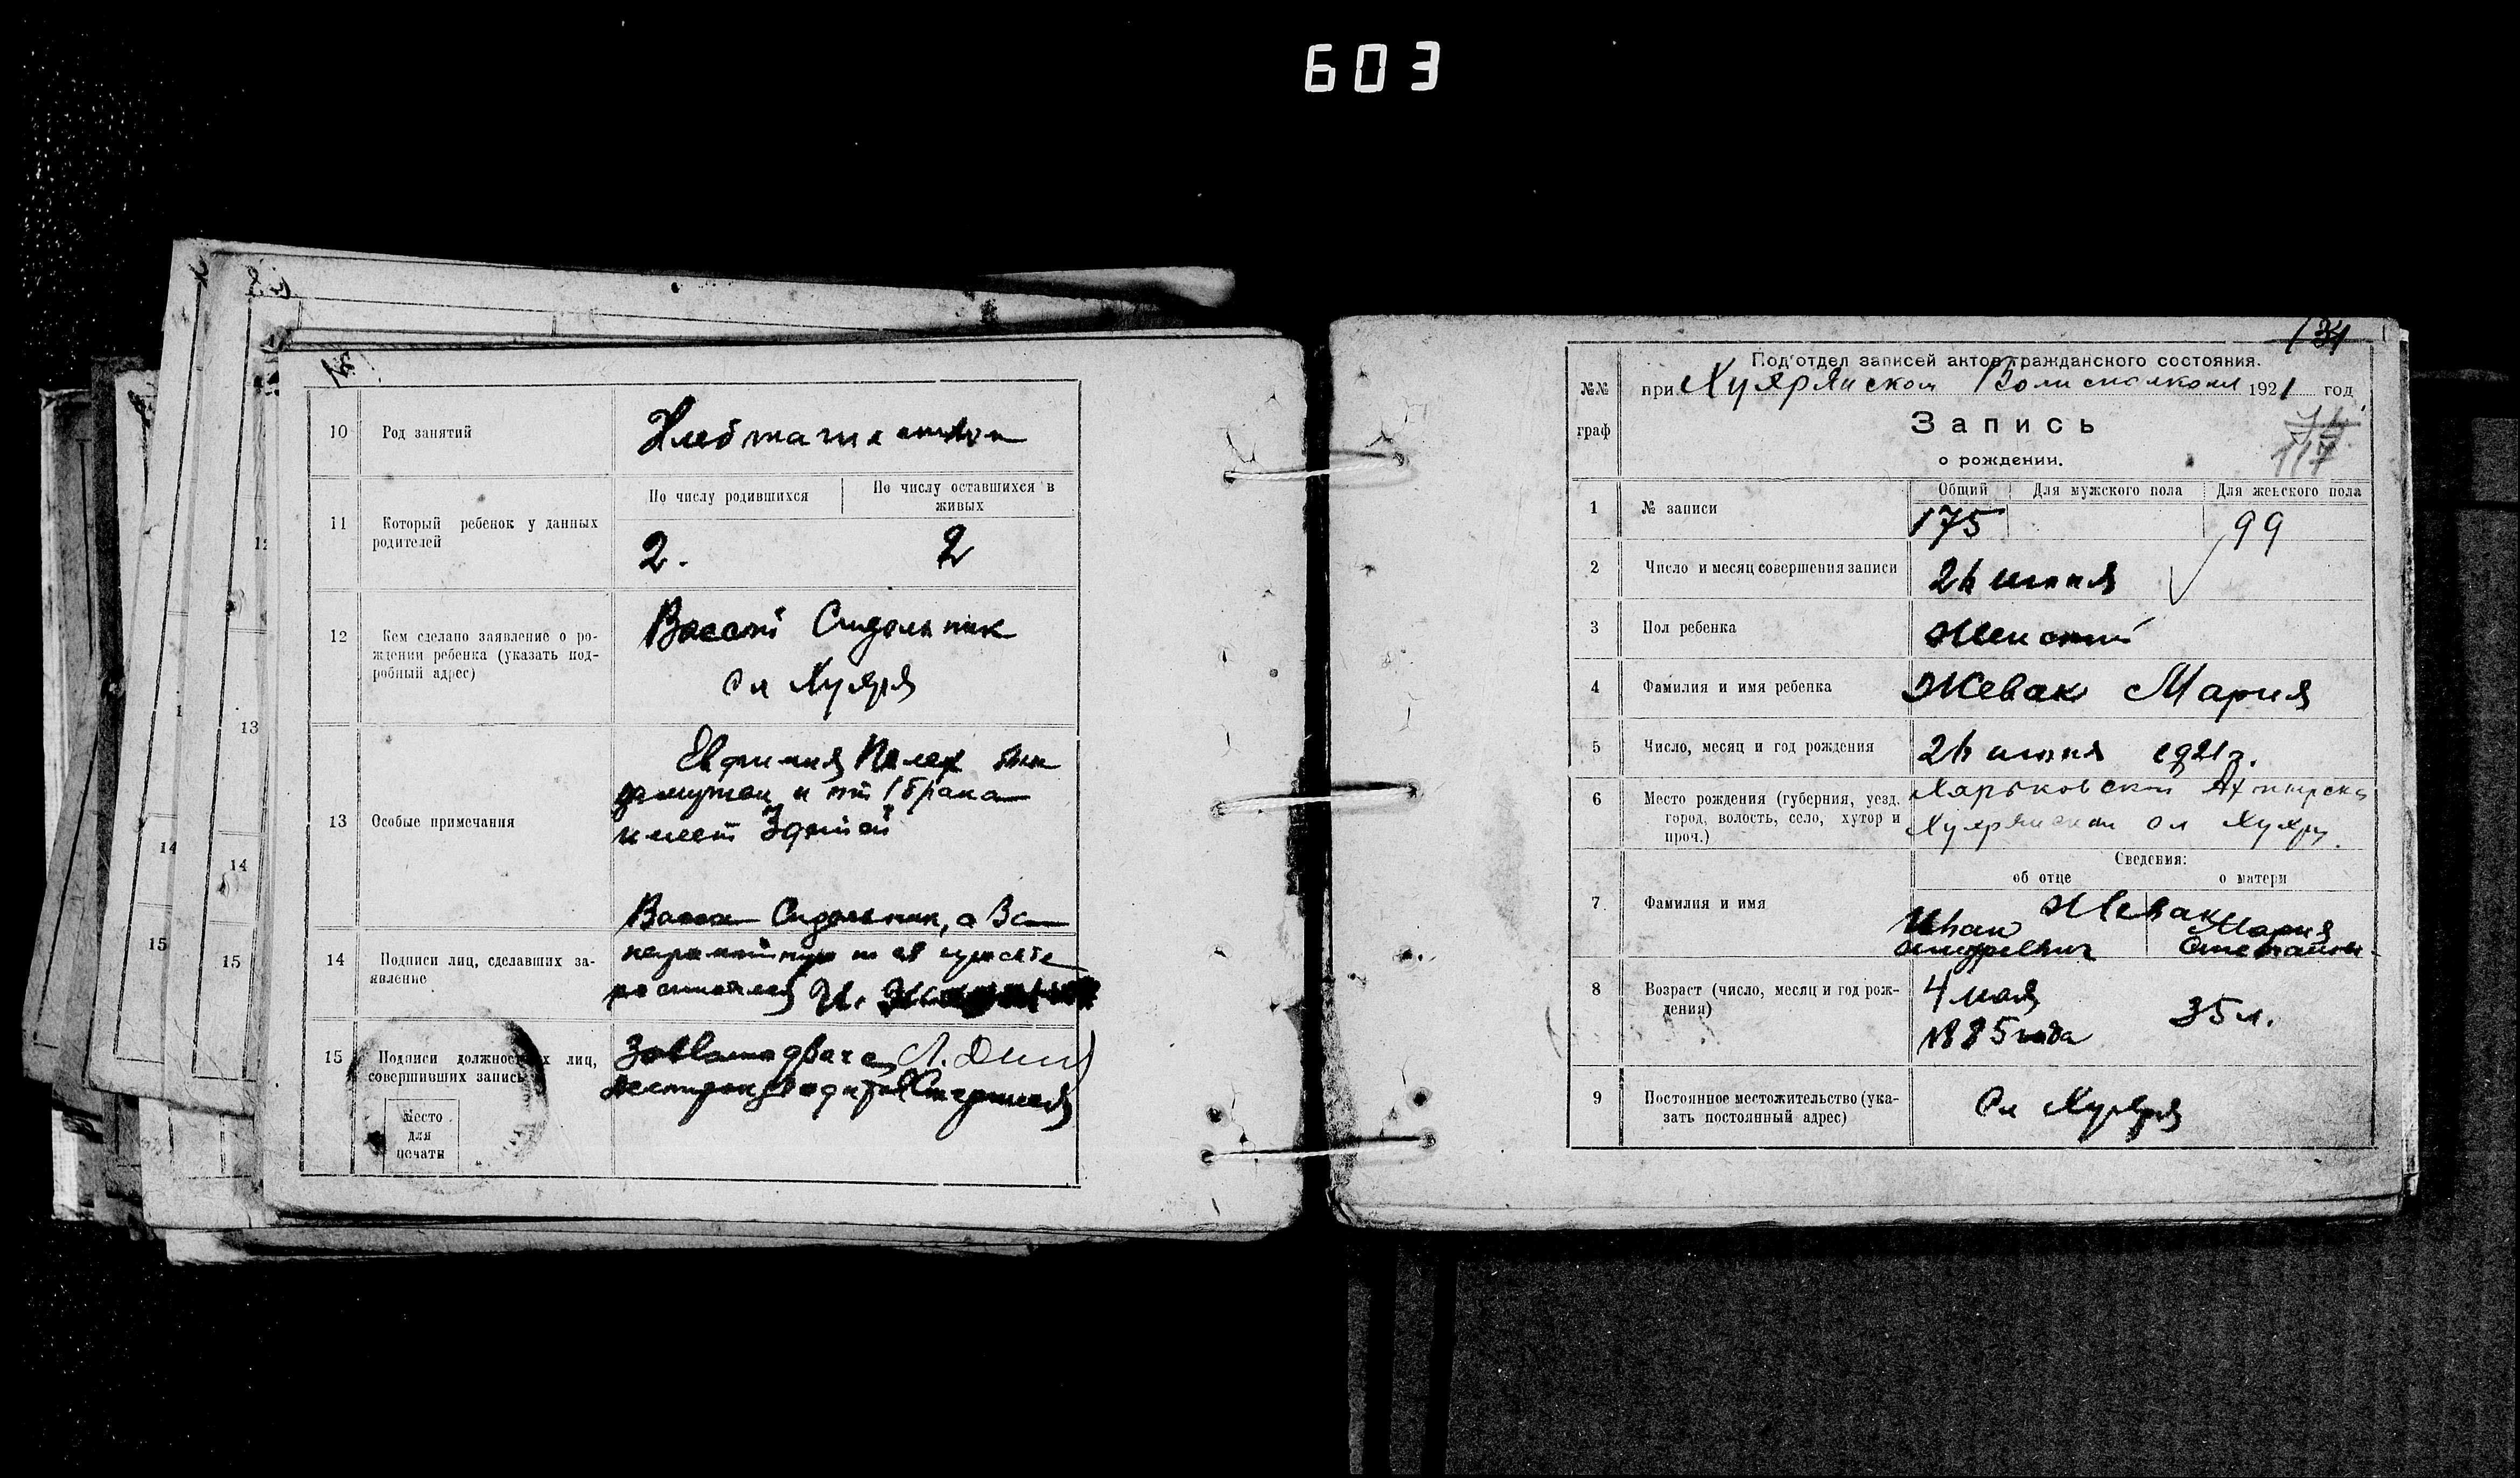 603
10 Род занятий
Хлебопашеством
11 Который ребенок у данных
родителей
По числу родившихся
По числу оставшихся в
живых
2.
2
12 Кем сделано заявление о ро-
ждении ребенка (указать под-
робный адрес)
Вассой Сидольник
сл Хухря
13 Особые примечания
Евфимия
замужем и от 1 брака
имеет 3 детей
14 Подписи лиц, сделавших за-
явление
Васса Сидольник, а За
неграмотную по ея
И.
15 Подписи должностных лиц,
совершивших запись
Место
для
печати
134
Под'отдел записей актов гражданского состояния.
№№
граф
при Хухрянском Волисполкоме 1921 год
Запись
о рождении.
117
1 № записи
Общий
Для мужского пола
Для женского пола
175
99
2 Число и месяц совершения записи
24 июня
3 Пол ребенка
Женский
4 Фамилия и имя ребенка
Жевак Мария
5 Число, месяц и год рождения
24 июня 1921 г.
6 Место рождения (губерния, уезд,
город, волость, село, хутор и
проч.)
Харьковской Ахтырск
Хухрянской сл Хухры
Сведения:
об отце
о матери
7 Фамилия и имя
Жевак
Иван
Мария
8 Возраст (число, месяц и год рож-
дения)
4 мая
1885 года
35 л.
9 Постоянное местожительство (ука-
зать постоянный адрес)
Сл Хухря